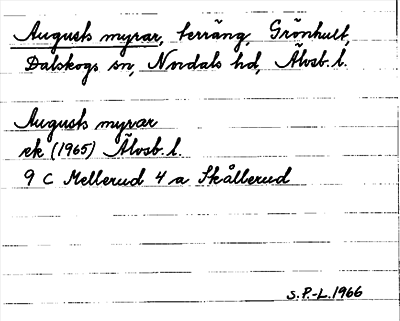 Augusts myrar, terräng, Grönhult,
Dalskogs sn, Nordals hd, Älvsb. l.
Augusts myrar
ek (1965) Älvsb. l.
9 C Mellerud 4 a Skållerud
S.P.-L. 1966